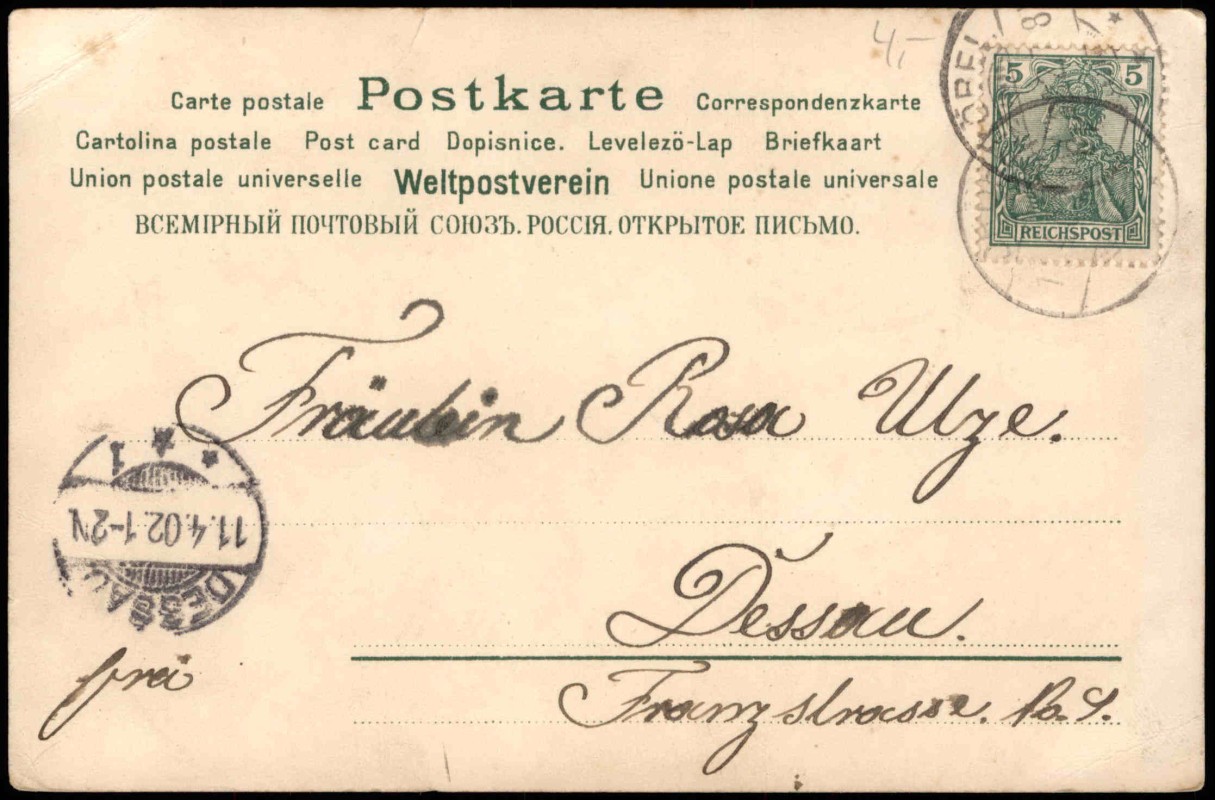 4,-
Carte postale Postkarte Correspondenzkarte
Cartolina postale Post card Dopisnice. Levelezö-Lap Briefkaart
Union postale universelle Weltpostverein Unione postale universale
ВСЕМІРНЫЙ ПОЧТОВЫЙ СОЮЗЪ. РОССІЯ. ОТКРЫТОЕ ПИСЬМО.
5 5
REICHSPOST
Fräulein Rosa Ulze.
1
11.4.02.1-2N
DESSAU
Dessau.
frei
Franzstrasse.